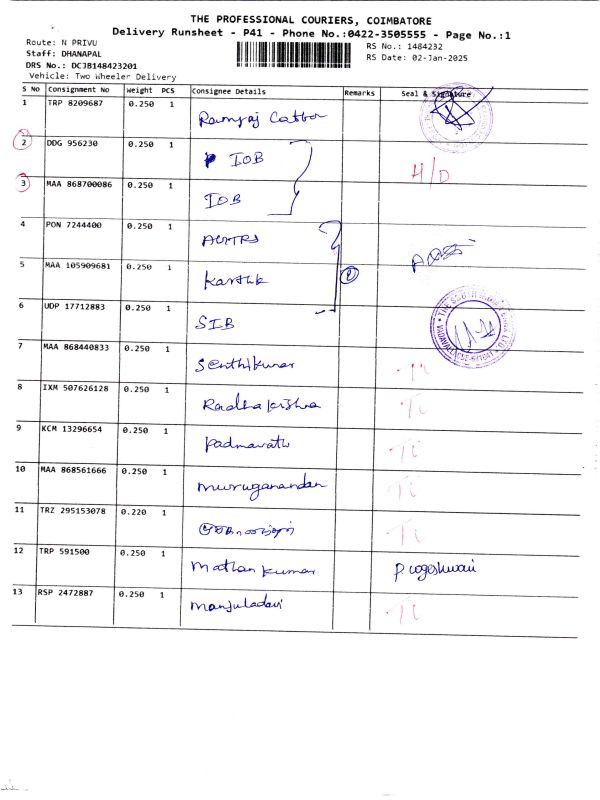 THE PROFESSIONAL COURIERS, COIMBATORE
Delivery Runsheet - P41 - Phone No.:0422-3505555 - Page No.:1
Route: N PRIVU
Staff: DHANAPAL
DRS No.: DCJB148423201
Vehicle: Two Wheeler Delivery
RS No.: 1484232
RS Date: 02-Jan-2025
S No Consignment No Weight PCS Consignee Details Remarks Seal & Signature
1 TRP 8209687 0.250 1 Ramraj Cotton
2 DDG 956230 0.250 1 IOB H/D
3 MAA 868700086 0.250 1 IOB
4 PON 7244400 0.250 1
5 MAA 105909681 0.250 1 Karthk
6 UDP 17712883 0.250 1 SIB
7 MAA 868440833 0.250 1 Senthilkumar
8 IXM 507626128 0.250 1 Radha Krishna
9 KCM 13296654 0.250 1 Padmavathi
10 MAA 868561666 0.250 1 Muruganandan
11 TRZ 295153078 0.220 1
12 TRP 591500 0.250 1 Mathan Kumar P. Logeshwari
13 RSP 2472887 0.250 1 Manjuladevi